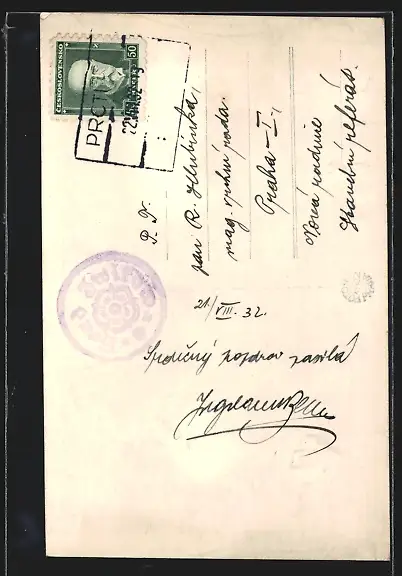 ČESKOSLOVENSKO
50
P. T.
pan R. Hlubinka,
mag. vrchní rada
Praha – I.,
Nová radnice
Stavební referát.
21/VIII. 32.
Srdečný pozdrav zasílá